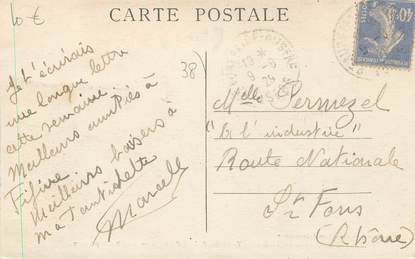 10 €
CARTE POSTALE
38
Je t'écrirais
une longue lettre
cette semaine...
Meilleurs amitiés à
Fifine
Meilleurs baisers à
ma Tantelette
Marcelle
Melle Permezel
"à l'industrie"
Route Nationale
St Fons
(Rhône)
40c